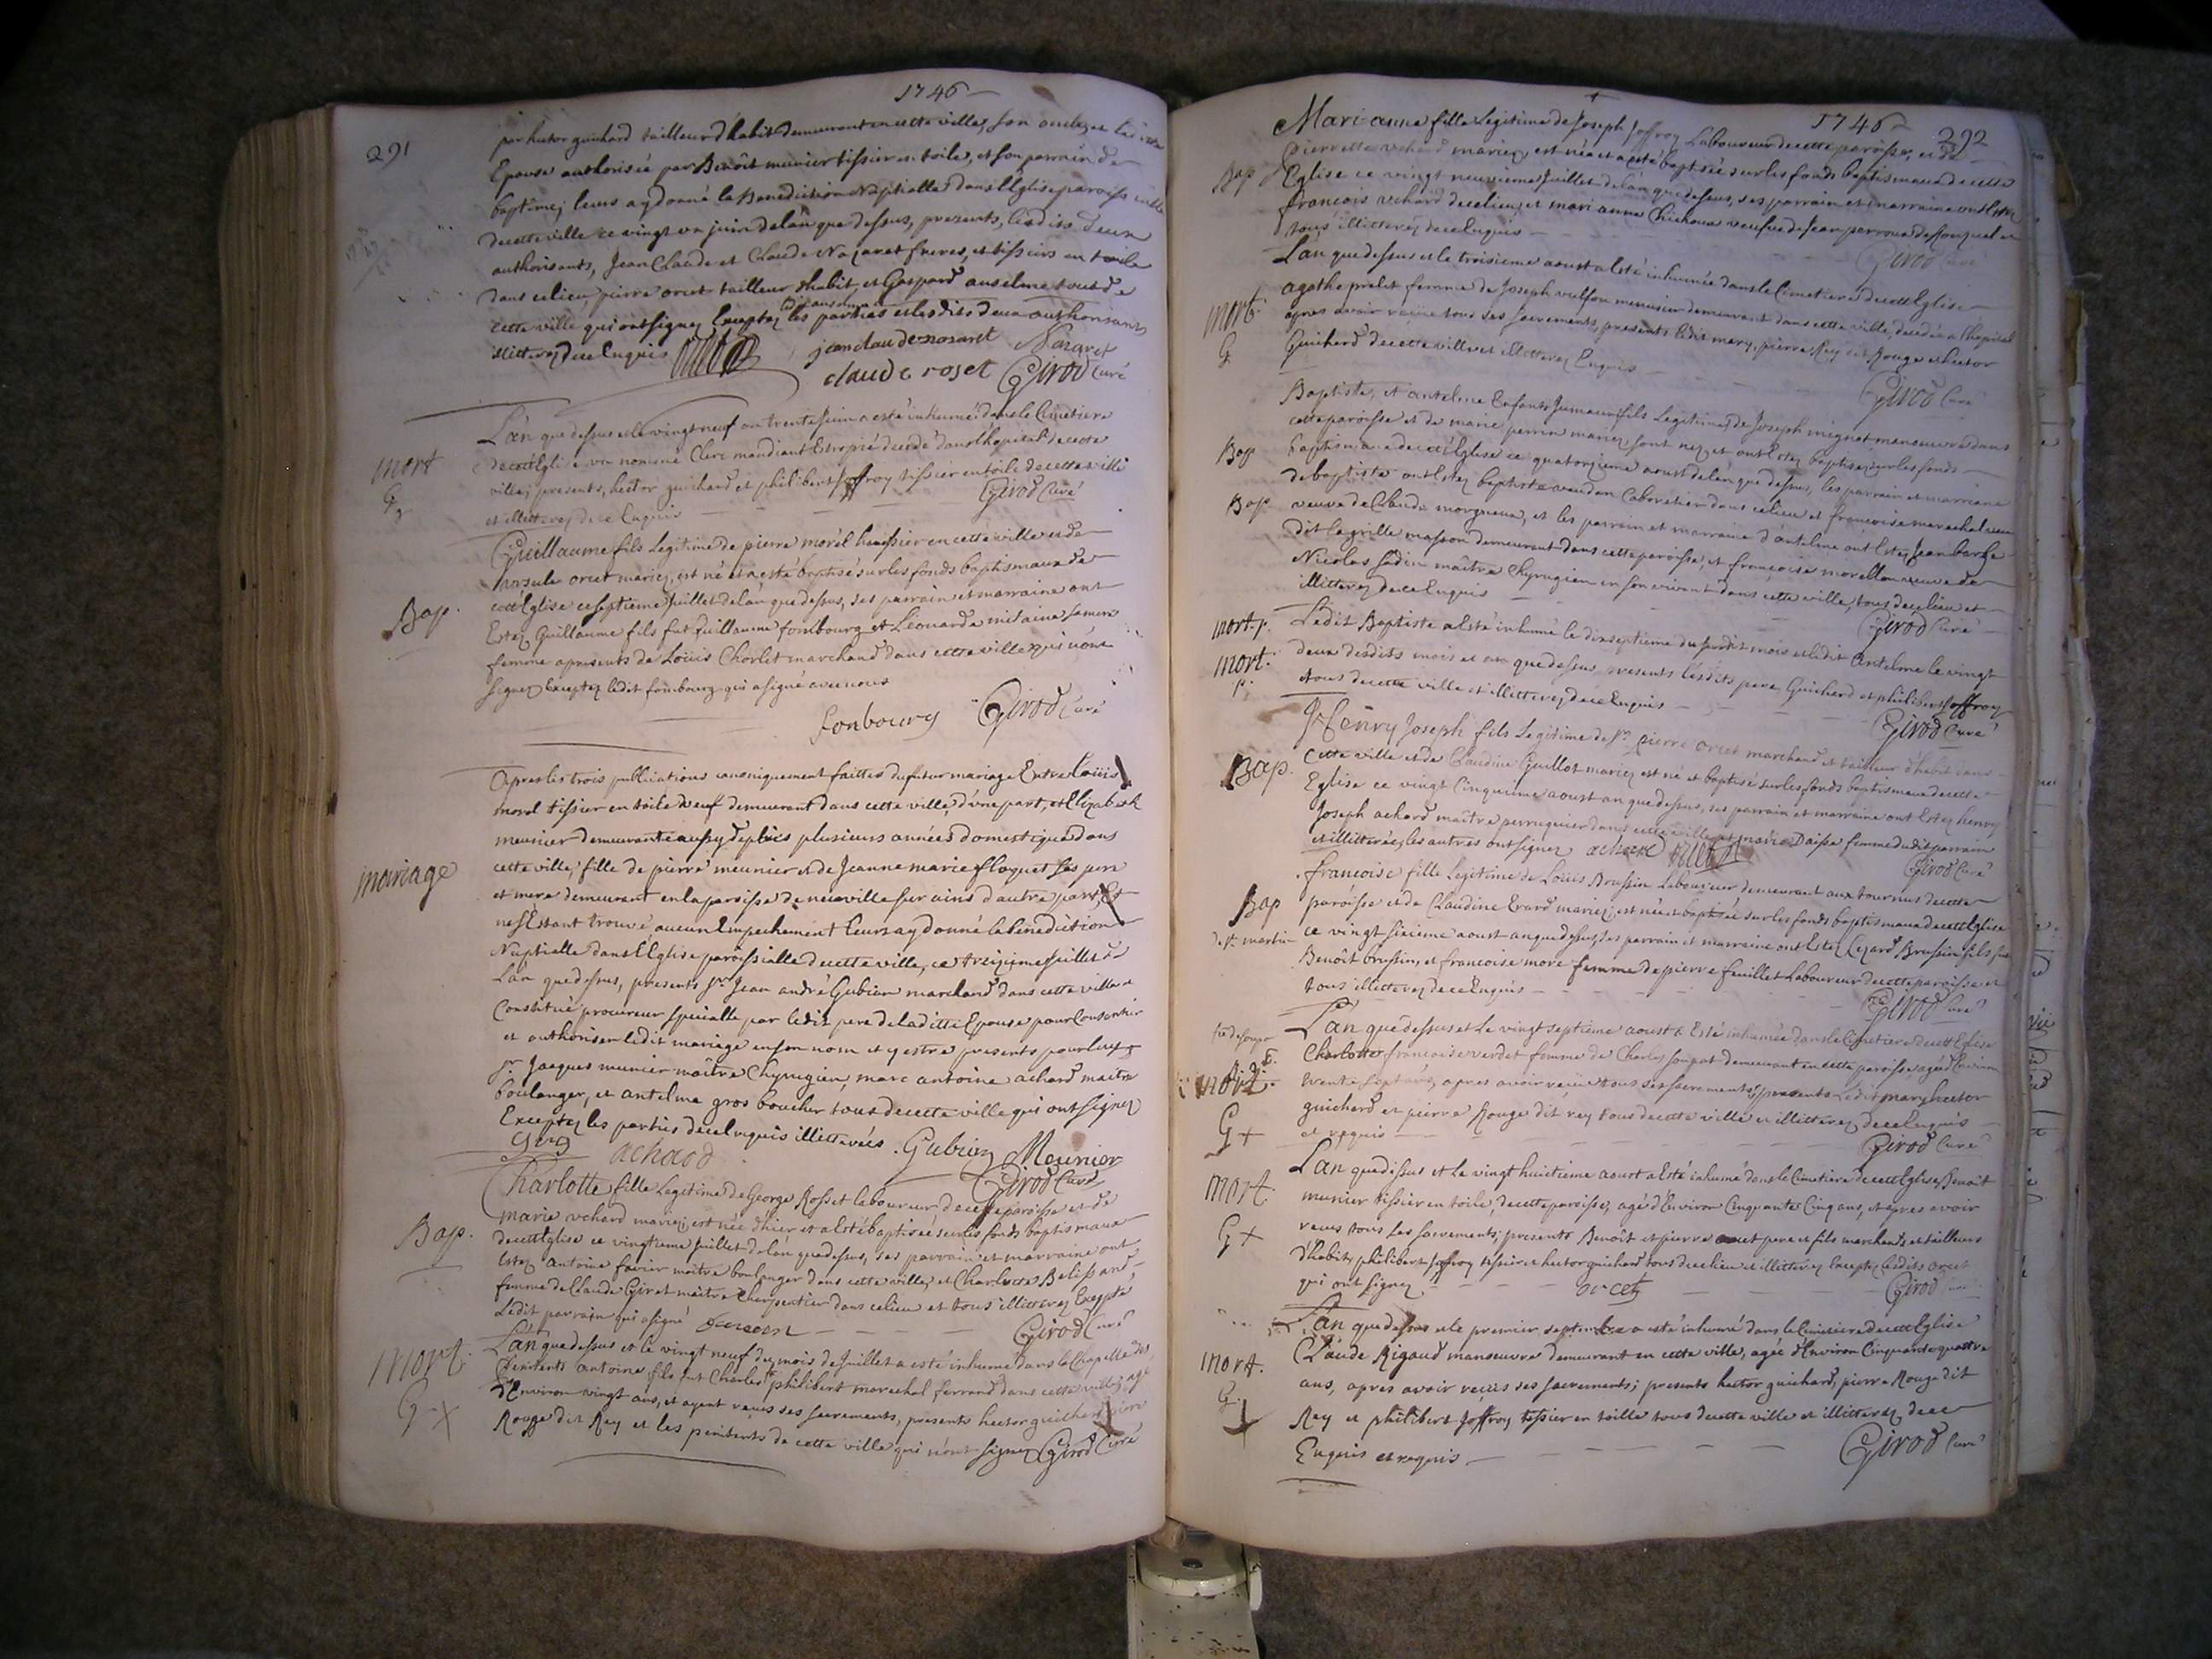 1746
291
par hector guichard tailleur d'habit demeurant en cette ville, son oncle, et la
Epouse authorisée par Benoît meunier tissier en toile, et son parrain de
baptême; leurs ay donné la Benediction Nuptialle dans l'Eglise paroissialle
de cette ville ce vingt un juin de l'an que dessus, presents, lesdits deux
authorisants, Jean Claude et Claude Nazaret freres, et tissiers en toile
dans ce lieu, pierre orcet tailleur d'habit, et Gaspard anselme tous de
cette ville qui ont signez Exceptez les parties et lesdits deux authorisants
illitterez de ce Enquis
jean claude nosaret Nazaret
claude roset Girod Curé
mort
G
L'an que dessus et le vingt neuf ou trente Juin a esté inhumé dans le Cimetiere
de cette Eglise un nommé Clerc mandiant Estropié decedé dans l'hopital de cette
ville; presents, hector guichard et philibert Joffroy tissier en toile de cette ville
et illitterez de ce Enquis Girod Curé
Bap.
Guillaume fils Legitime de pierre morel huissier en cette ville et de
Ursule orcet mariez, est né et a esté baptisé sur les fonds baptismaux de
cette Eglise ce septieme Juillet de l'an que dessus, ses parrain et marraine ont
Estez Guillaume fils fut Guillaume fombourg et Leonarde mitaine
femme a presents de Loüis Chorlet marchand dans cette ville qui n'ont
signez Exceptez ledit fombourg qui a signé avec nous
fonbourg Girod Curé
mariage
Apres les trois publications canoniquement faittes du futur mariage Entre Loüis
morel tissier en toile veuf demeurant dans cette ville, d'une part, et Elizabeth
meunier demeurante aussy depüis plusieurs années domestique dans
cette ville, fille de pierre meunier et de Jeanne marie floquet ses pere
et mere demeurant en la paroisse de neuville sur ains d'autre part, Et
ne s'Estant trouvé aucun Empechement leurs ay donné la benediction
Nuptialle dans l'Eglise paroissialle de cette ville, ce treizieme Juillet de
L'an que dessus, presents Sr. Jean andré Gubian marchand dans cette ville et
Constitué procureur specialle par ledit pere de laditte Epouse pour Consentir
et authoriser ledit mariage en son nom et y estre presents pour luy,
Sr. Jacques munier maître Chyrugien, marc antoine achard maitre
boulanger, et antelme gros boucher tous de cette ville qui ont signez
Exceptez les parties de ce Enquis illitterées. Gubian Meunier
gros achard Girod Curé
Bap.
Charlotte fille Legitime de George Rosset laboureur de cette paroisse et de
marie uchard mariez, est née d'hier et a esté baptisée sur les fonds baptismaux
de cette Eglise ce vingtieme Juillet de l'an que dessus, ses parrain et marraine ont
Estez antoine favier maître boulanger dans cette ville, et Charlotte Belissand
femme de Claude Giret maître Charpentier dans ce lieu et tous illitterez Excepté
Ledit parrain qui a signé Girod Curé
Mort.
G x
L'an que dessus et le vingt neuf du mois de Juillet a esté inhumé dans la Chapelle des
Penitents antoine fils fut Charles philibert marechal ferrand dans cette ville, agé
d'Environ vingt ans, et ayant reçus ses sacrements, presents hector guichard pierre
Rouge dit Rey et les penitents de cette ville qui n'ont signez Girod Curé
1746 292
Bap
Mari-anne fille Legitime de Joseph Joffroy Laboureur de cette paroisse, et de
pierrette uchard mariez, est née et a esté baptisée sur les fonds baptismaux de cette
Eglise ce vingt neuvieme Juillet de l'an que dessus, ses parrain et marraine ont Estez
francois uchard de ce lieu, et mari anne Chichoux veufve de Jean perroud
tous illitterez de ce Enquis Girod Curé
mort.
G
L'an que dessus et le troisieme aoust a esté inhumée dans le Cimetiere de cette Eglise
agathe prelet femme de Joseph menuisier demeurant dans cette ville, decedée a l'hopital
apres avoir reçüe tous ses sacrements, presents ledit mary, pierre Rey dit Rouge et hector
Guichard de cette ville et illitterez Enquis
Girod Curé
Bap
Bap
Baptiste, et antelme Enfants Jumeaux fils Legitimes de Joseph mignot manoeuvre dans
cette paroisse et de marie perrin mariez, sont nez et ont Estez baptisez sur les fonds
baptismaux de cette Eglise ce quatorzieme aoust de l'an que dessus, les parrain et marraine
de baptiste ont Estez baptiste Cabaretier dans ce lieu et francoise marechal
veuve de Claude morgneux, et les parrain et marraine d'antelme ont Estez Jean barge
dit la grille masson demeurant dans cette paroisse, et françoise morellon veuve de
Nicolas Sadin maître Chyrugien en son vivant dans cette ville, tous de ce lieu et
illitterez de ce Enquis
Girod Curé
mort. p.
mort. p.
Ledit Baptiste a esté inhumé le dixseptieme du susdit mois et ledit Antelme le vingt
deux desdits mois et an que dessus presents lesdits pere, Guichard et philibert Joffroy
tous de cette ville et illitterez de ce Enquis
Girod Curé
Bap.
Henry Joseph fils Legitime de Sr. pierre orcet marchand et tailleur d'habit dans
cette ville et de Claudine Guillot mariez est né et baptisé sur les fonds baptismaux de cette
Eglise ce vingt Cinquieme aoust an que dessus, ses parrain et marraine ont Estez henry
Joseph achard maître perruquier dans cette ville et marie Daissa femme dudit parrain
et illitterée, les autres ont signez achard
Girod Curé
Bap
de st. martin
francoise fille Legitime de Loüis Brussin Laboureur demeurant aux tournus de cette
paroisse et de Claudine Evard mariez, est née et baptisée sur les fonds baptismaux de cette Eglise
ce vingt sixieme aoust an que dessus, ses parrain et marraine ont Estez Cezard Brussin fils fut
Benoît brussin, et francoise more femme de pierre feuillet Laboureur de cette paroisse et
tous illitterez de ce Enquis
Girod Curé
mort
G +
L'an que dessus et Le vingt septieme aoust a Esté inhumée dans le Cimetiere de cette Eglise
Charlotte francoise verdet femme de Charles soupat demeurant en cette paroisse agée d'Environ
trente sept ans, apres avoir reçüe tous ses sacrements, presents Ledit mary hector
guichard et pierre Rouge dit rey tous de cette ville et illitterez de ce Enquis
et requis
Girod Curé
mort
G +
L'an que dessus et Le vingt huitieme aoust a Esté inhumé dans le Cimetiere de cette Eglise, Benoît
munier tissier en toile, de cette paroisse, agé d'Environ Cinquante Cinq ans, et apres avoir
reçus tous Les sacrements; presents Benoît et pierre orcet pere et fils marchands, et tailleurs
d'habits, philibert Joffroy tissier et hector guichard tous de ce lieu et illitterez Exceptez Lesdits orcet
qui ont signez orcet Girod Curé
mort.
G
L'an que dessus et le premier septembre a esté inhumé dans le Cimetiere de cette Eglise
Claude Rigaud manoeuvre demeurant en cette ville, agée d'Environ Cinquante quattre
ans, apres avoir reçüs ses sacrements; presents hector guichard, pierre Rouge dit
Rey et philibert Joffroy tissier en toille tous de cette ville et illitterez de ce
Enquis et requis
Girod Curé